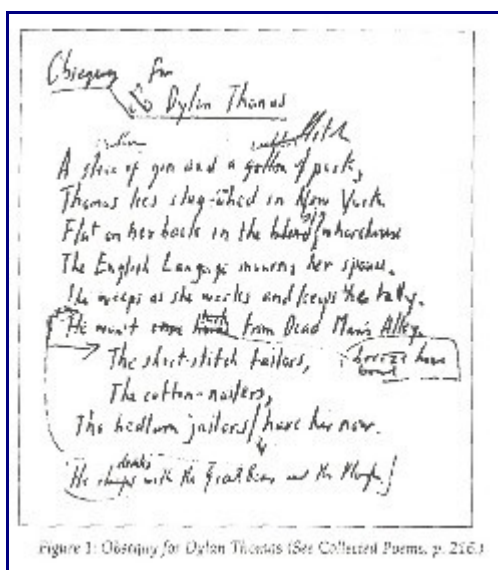 Obsequy for
Dylan Thomas
A slice of gin and a of pork,
Thomas lies slug-abed in New York.
Flat on her back in the whorehouse
The English Language mourns her spouse.
She weeps as she works and keeps the tally.
He won't from Dead Man's Alley.
The shirt-stitch tailors,
The cotton-nailers,
The bedlam jailers have him now.
He with the Great Bear and the Plough
Figure 1: Obsequy for Dylan Thomas (See Collected Poems, p. 216.)